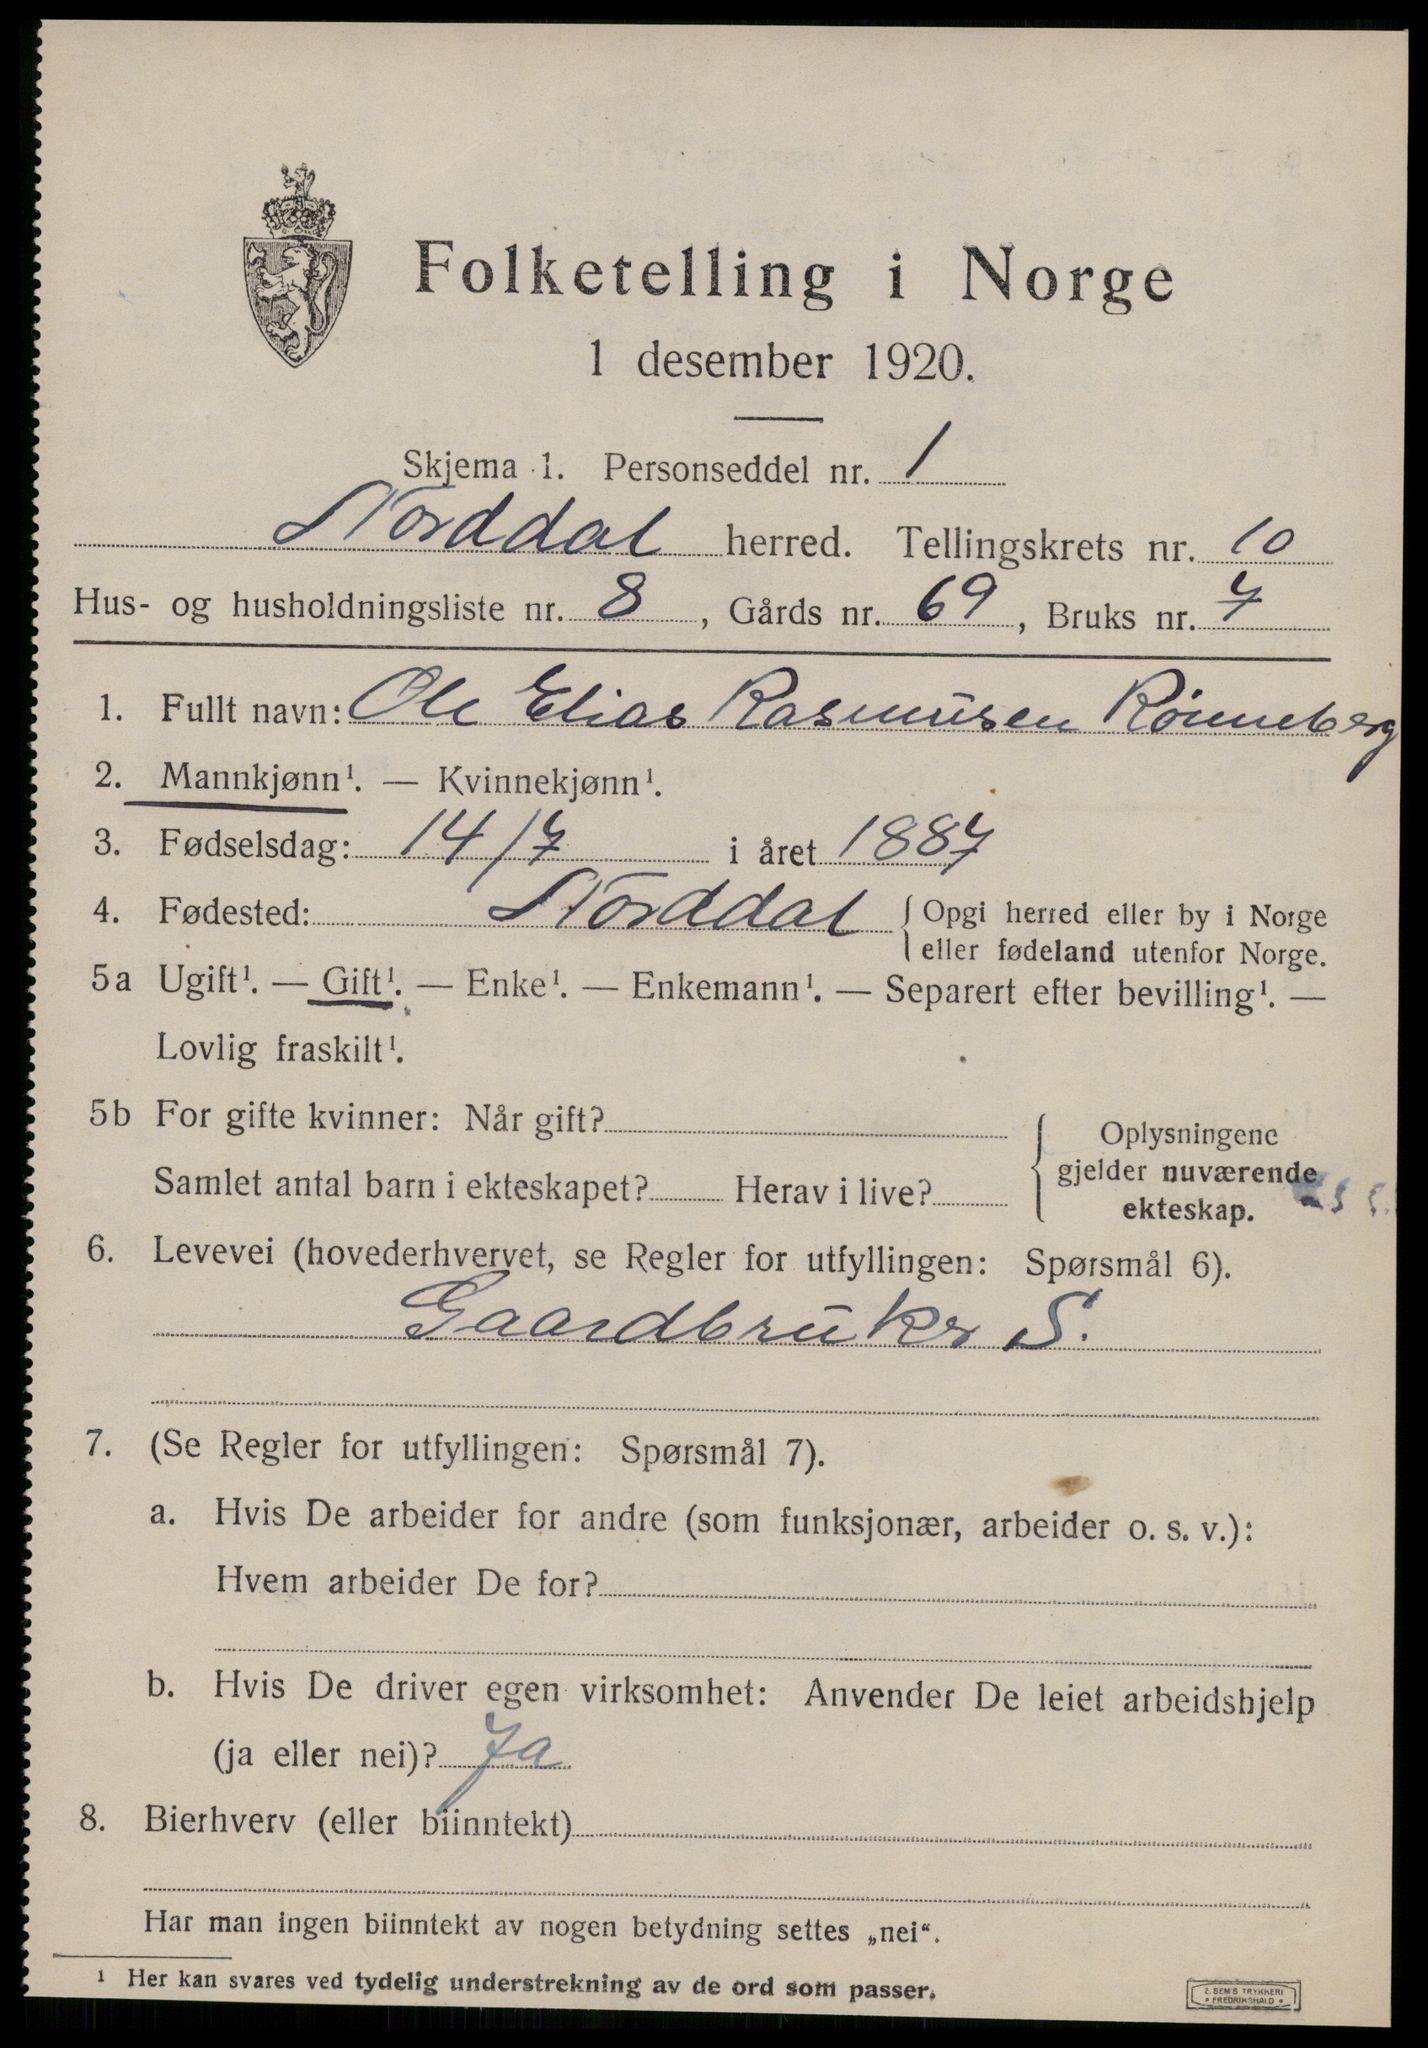 Folketelling i Norge
1 desember 1920.
Skjema 1. Personseddel nr. 1
Norddal herred. Tellingskrets nr. 10
Hus- og husholdningsliste nr. 8, Gårds nr. 69, Bruks nr. 7
1. Fullt navn: Ole Elias Rasmusen Rønneberg
2. Mannkjønn¹. — Kvinnekjønn¹.
3. Fødselsdag: 14/7 i året 1887
4. Fødested: Norddal { Opgi herred eller by i Norge
eller fødeland utenfor Norge.
5a Ugift¹. — Gift¹. — Enke¹. — Enkemann¹. — Separert efter bevilling¹. —
Lovlig fraskilt¹.
5b For gifte kvinner: Når gift?
Samlet antal barn i ekteskapet? Herav i live?
Oplysningene
gjelder nuværende
ekteskap.
6. Levevei (hovederhvervet, se Regler for utfyllingen: Spørsmål 6).
Gaardbruker S.
7. (Se Regler for utfyllingen: Spørsmål 7).
a. Hvis De arbeider for andre (som funksjonær, arbeider o. s. v.):
Hvem arbeider De for?
b. Hvis De driver egen virksomhet: Anvender De leiet arbeidshjelp
(ja eller nei)? Ja
8. Bierhverv (eller biinntekt)
Har man ingen biinntekt av nogen betydning settes „nei“.
¹ Her kan svares ved tydelig understrekning av de ord som passer.
E. SEM'S TRYKKERI
* FREDRIKSHALD *